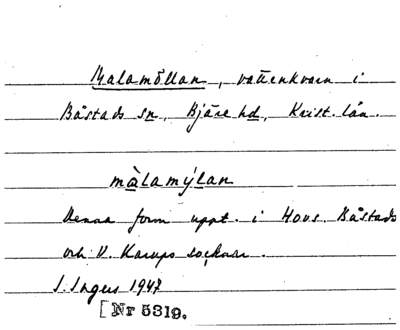 Malamöllan, vattenkvarn i
Båstads sn, Bjäre hd, Krist. län.
màlamýlan
Denna form uppt. i Hovs, Båstads
och V. Karups socknar.
I. Ingers 1947
[Nr 5319.